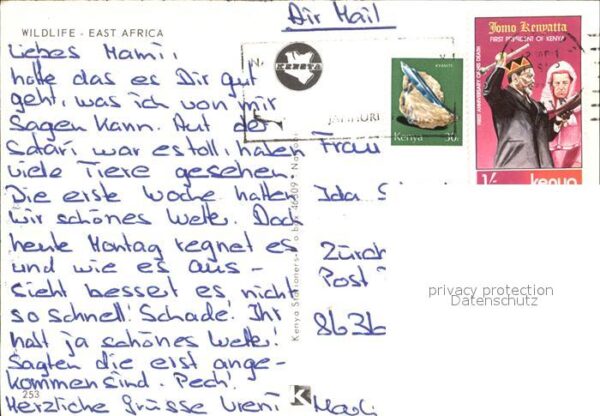 Air Mail
WILDLIFE - EAST AFRICA
Liebes Mami,
hoffe das es Dir gut
geht, was ich von mir
sagen kann. Auf der
Safari war es toll, haben
viele Tiere gesehen.
Die erste Woche hatten
wir schönes Wetter. Doch
heute Montag regnet es
und wie es aus-
sieht bessert es nicht
so schnell! Schade! Ihr
habt ja schönes Wetter!
Sagten die erst ange-
kommen sind. Pech!
Herzliche Grüsse Vreni
253
Kenya Stationers - P.o box 40309 - Nairobi
KENYA
JAMHURI
KYANITE
Kenya 50
Jomo Kenyatta
FIRST PRESIDENT OF KENYA
FIRST ANNIVERSARY OF HIS DEATH
1/- kenya
Frau
Ida
Zürch
Post
8636
privacy protection
Datenschutz
K